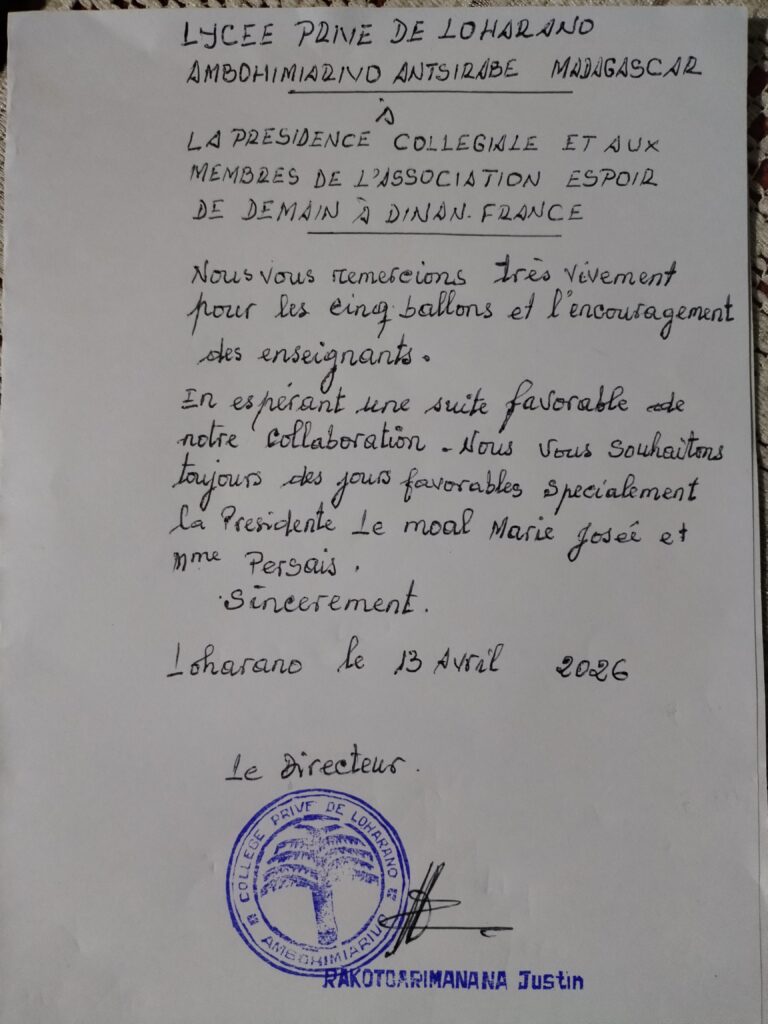 LYCEE PRIVE DE LOHARANO
AMBOHIMIARIVO ANTSIRABE MADAGASCAR
à
LA PRESIDENCE COLLEGIALE ET AUX
MEMBRES DE L'ASSOCIATION ESPOIR
DE DEMAIN À DINAN.FRANCE
Nous vous remercions très vivement
pour les cinq ballons et l'encouragement
des enseignants.
En espérant une suite favorable de
notre collaboration. Nous vous souhaitons
toujours des jours favorables specialement
la Presidente Le moal Marie Joseé et
Mme Persais.
Sincerement.
Loharano le 13 Avril 2026
Le Directeur.
COLLEGE PRIVE DE LOHARANO
AMBOHIMIARIVO
RAKOTOARIMANANA Justin